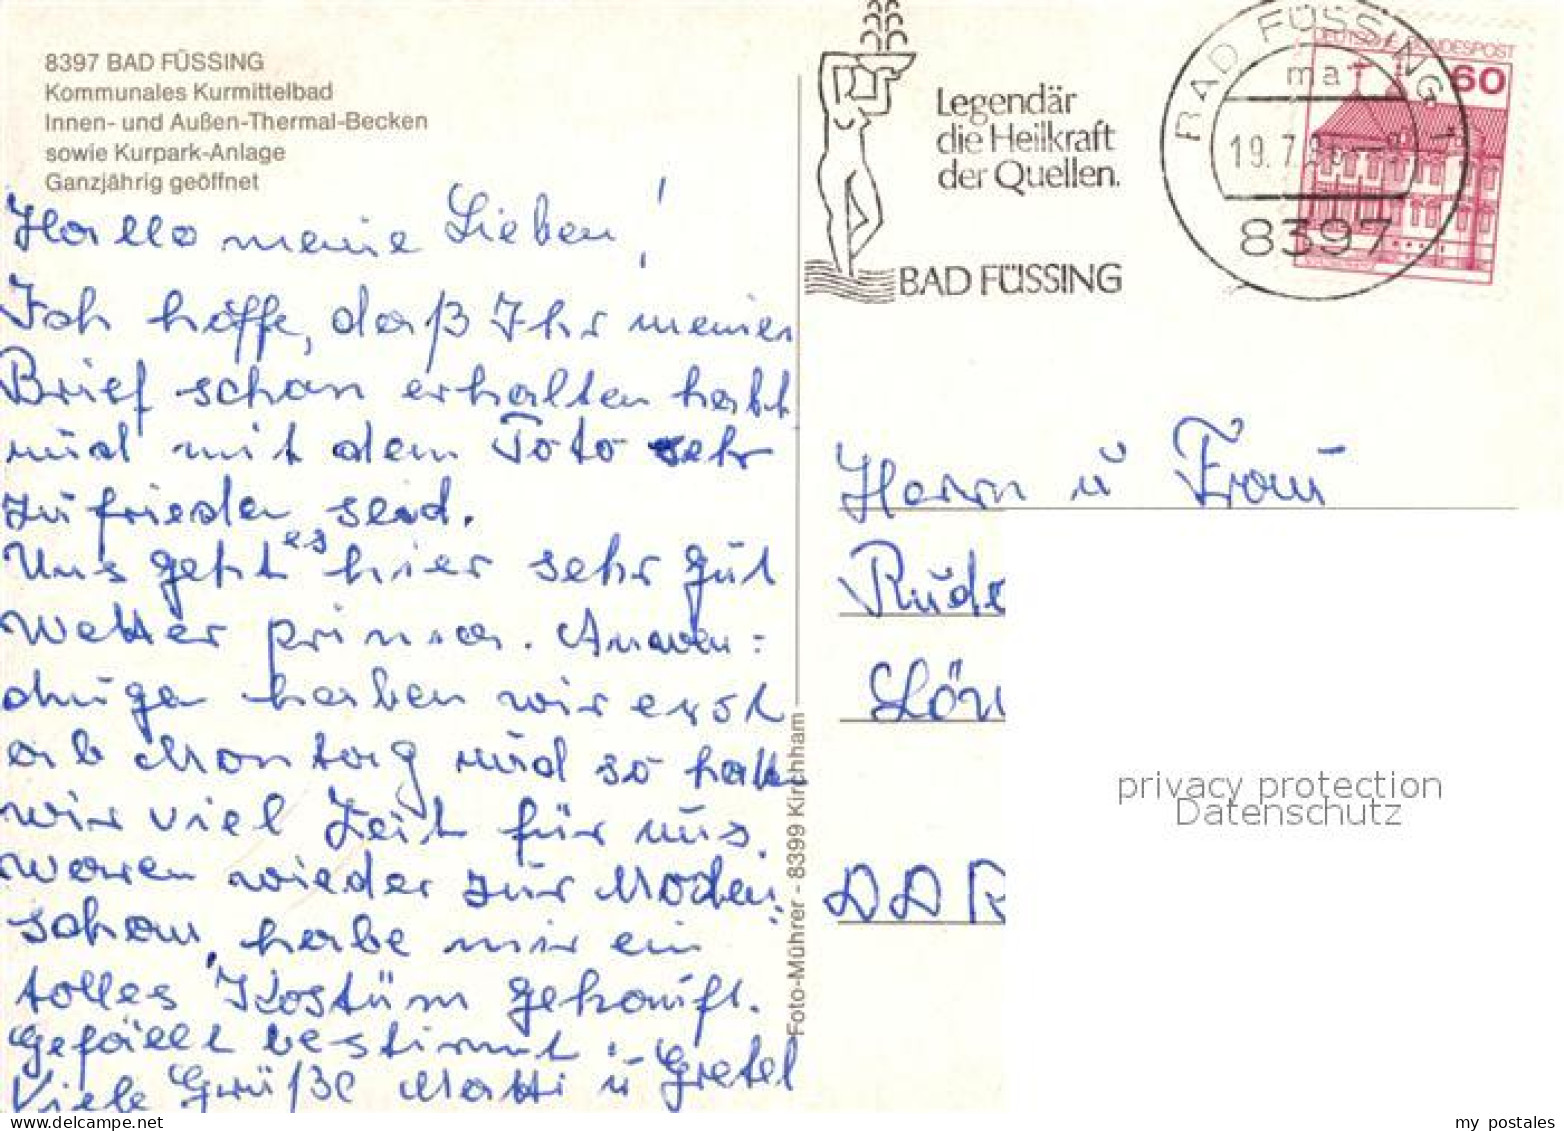 8397 BAD FÜSSING
Kommunales Kurmittelbad
Innen- und Außen-Thermal-Becken
sowie Kurpark-Anlage
Ganzjährig geöffnet
Hallo meine Lieben!
Ich hoffe, daß Ihr meinen
Brief schon erhalten habt
und mit dem Foto sehr
zufrieden seid.
Uns geht es hier sehr gut
Wetter prima. Anwen=
dungen haben wir erst
ab Montag und so haben
wir viel Zeit für uns.
Waren wieder zur Moden=
schau, habe mir ein
tolles Kostüm gekauft.
Gefällt bestimmt.
Viele Grüße Matti u Gretel
Foto-Mührer - 8399 Kirchham
Legendär
die Heilkraft
der Quellen.
BAD FÜSSING
BAD FÜSSING 1
ma
19.7.
8397
DEUTSCHE BUNDESPOST
60
Herrn u Frau
Rud
Lön
DDR
privacy protection
Datenschutz
my postales